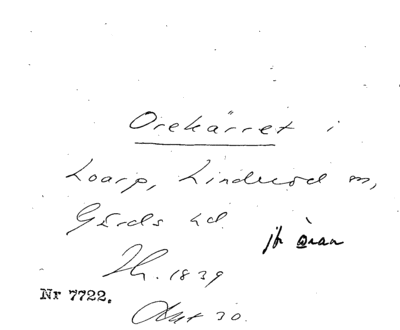 Orekärret i
Loarp, Linderöd sn,
Gärds hd.
jfr åran
Th. 1839
Nr 7722.
Akt 30.